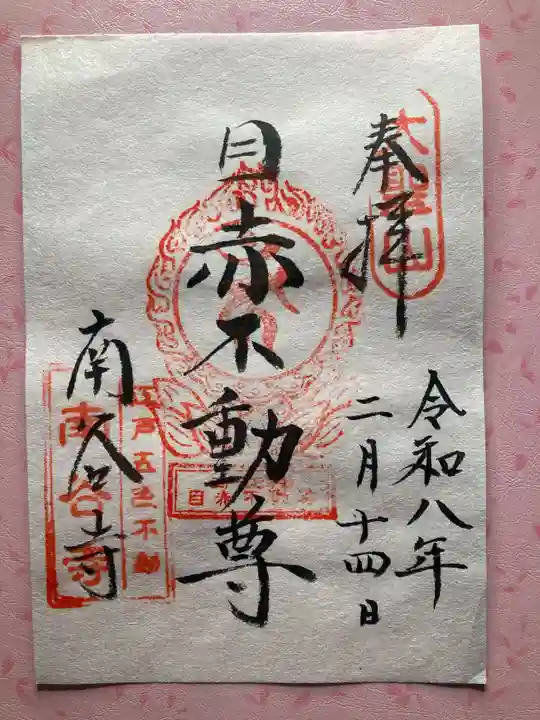 奉拝
大聖山
令和八年
二月十四日
目赤不動尊
目赤不動尊
南谷寺
江戸五色不動
南谷寺